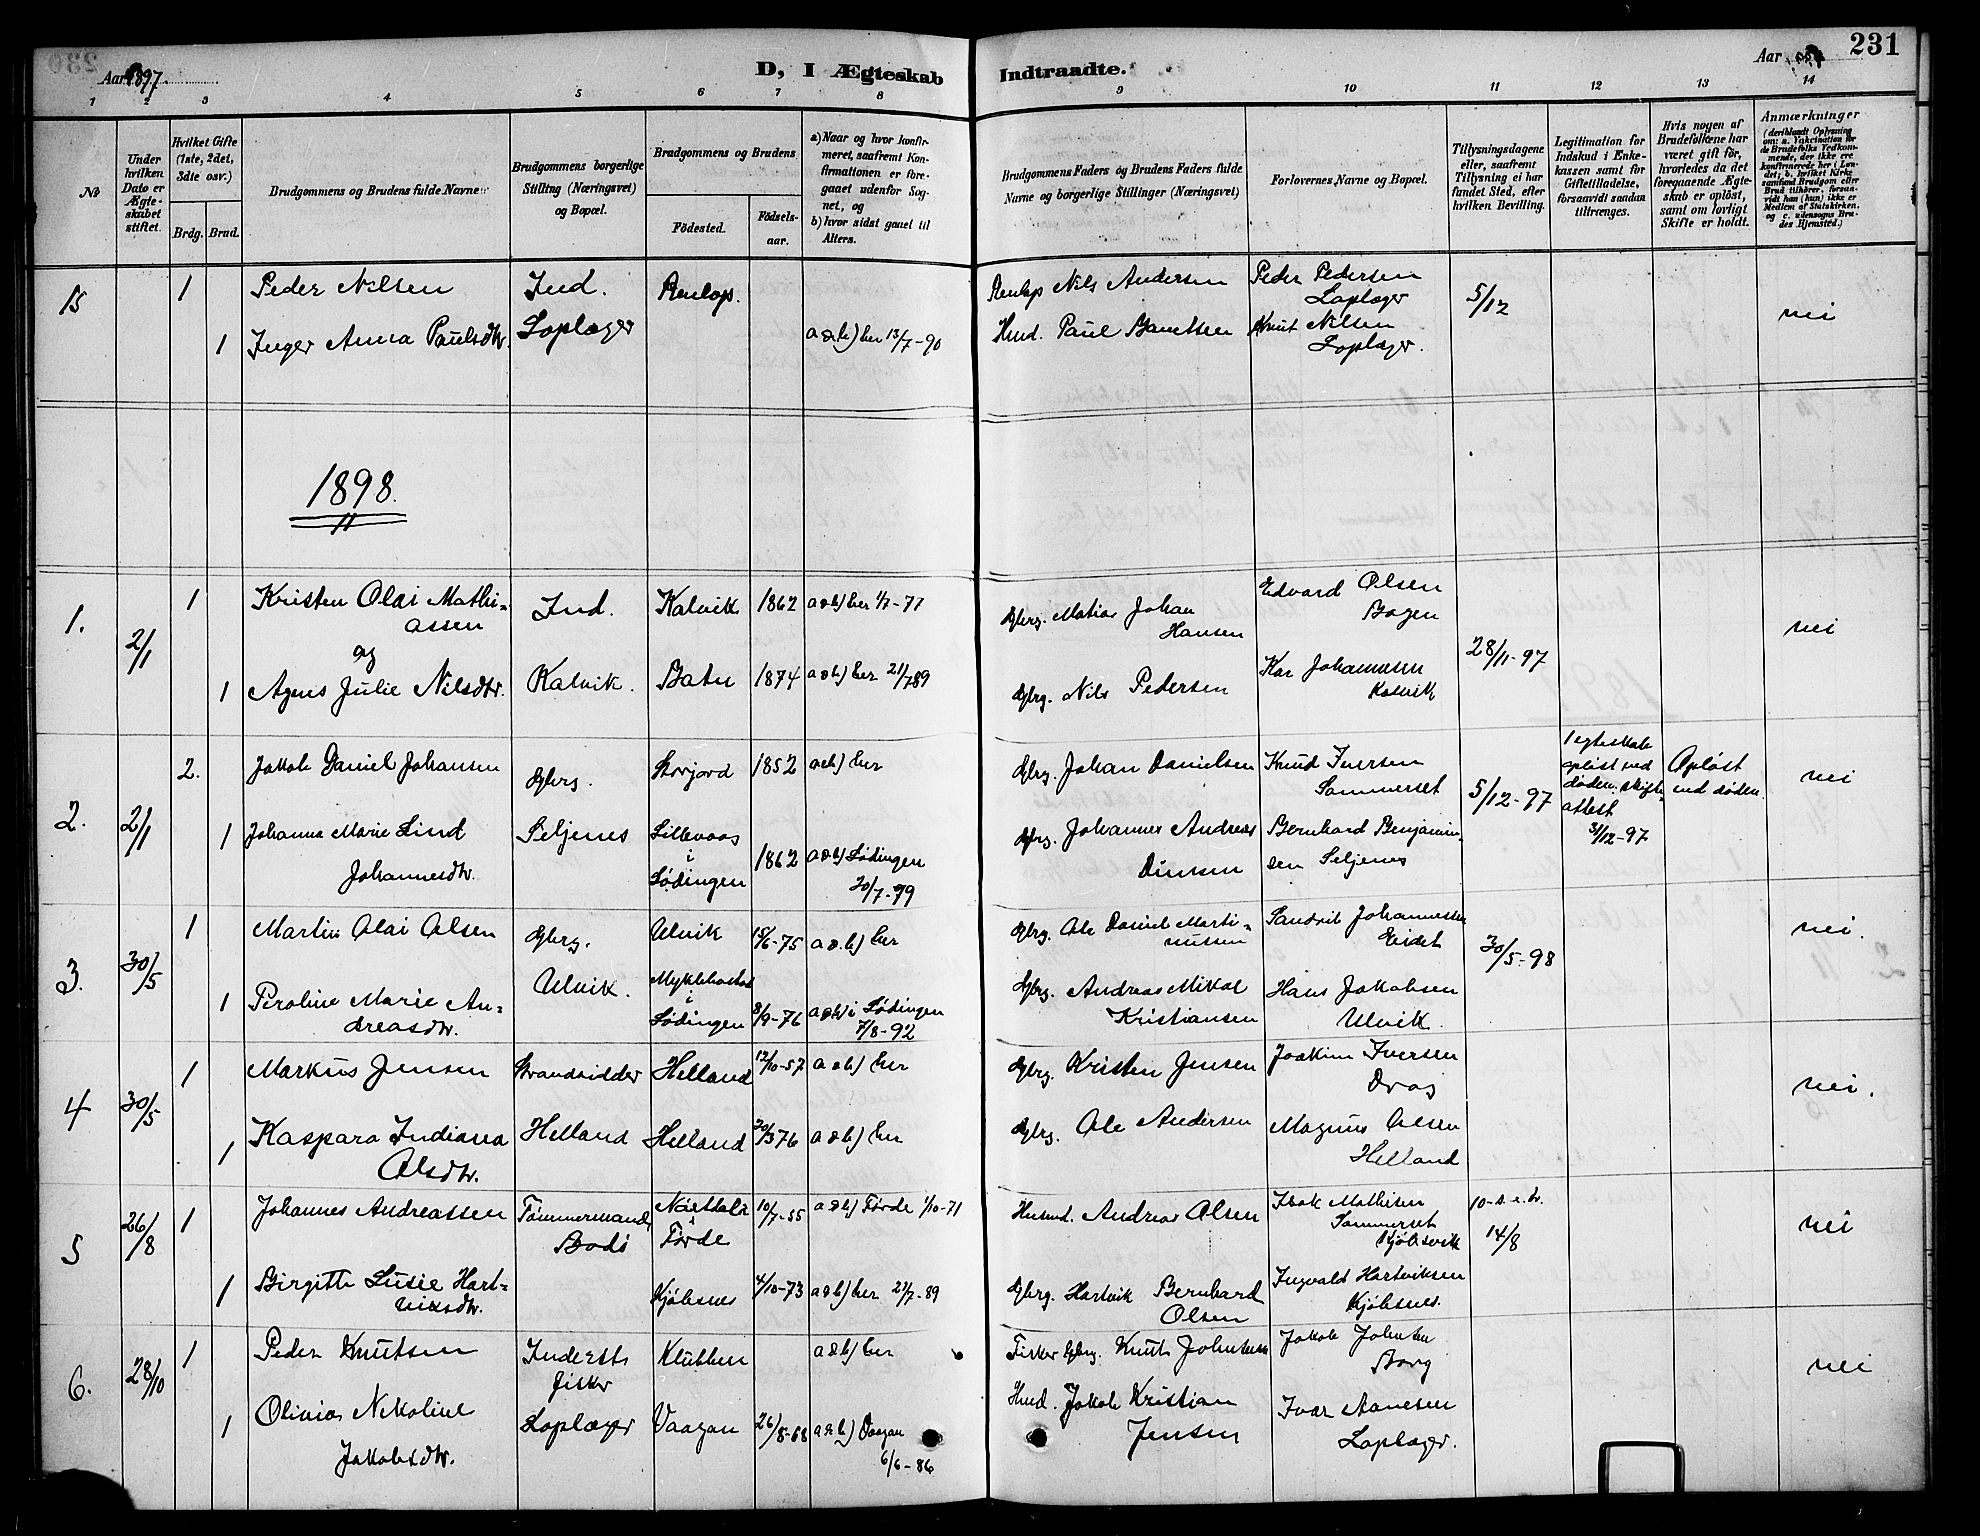 231
Aar 1897.
D, I Ægteskab Indtraadte.
Aar
1 2 3 4 5 6 7 8 9 10 11 12 13 14
No
Under hvilken Dato er Ægteskabet stiftet.
Hvilket Gifte (1ste, 2det, 3die osv.)
Brdg. Brud.
Brudgommens og Brudens fulde Navne.
Brudgommens borgerlige Stilling (Næringsvei) og Bopæl.
Brudgommens og Brudens
Fødested.
Fødselsaar.
a) Naar og hvor konfirmeret, saafremt Konfirmationen er foregaaet udenfor Sognet, og
b) hvor sidst gaaet til Alters.
Brudgommens Faders og Brudens Faders fulde Navne og borgerlige Stillinger (Næringsvei)
Forlovernes Navne og Bopæl.
Tillysningsdagene eller, saafremt Tillysning ei har fundet Sted, efter hvilken Bevilling.
Legitimation for Indskud i Enkekassen samt for Giftetilladelse, forsaavidt saadan tiltrænges.
Hvis nogen af Brudefolkene har været gift før, hvorledes da det foregaaende Ægteskab er opløst, samt om lovligt Skifte er holdt.
Anmærkninger
(deriblandt Oplysning om: a. Vakcination for de Brudefolks Vedkommende, der ikke ere konfirmerede her i Landet; b. hvilket Kirkesamfund Brudgom eller Brud tilhører, forsaavidt han (hun) ikke er Medlem af Statskirken, og c. udensogns Brudes Hjemsted.)
15 1 Peder Nilsen Ind. Nils Andersen Peder Pedersen
Loplæger
5/12 nei
1 Inger Anna Paulsdtr. Loplæger a & b) her 13/7-90 Hmd. Paul Knut Nilsen
Loplæger.
1898.
1. 2/1 1 Kristen Olai Mathiassen Ind. Kalvik 1862 a & b) her 1/7-77 Gbrg. Matias Johan Hansen Edvard Olsen
Bogen
28/11-97 nei
og
1 Agnes Julie Nilsdtr. Kalvik. 1874 a & b) her 21/7 89 Gbrg. Nils Pedersen Johannesen
Kalvik
2. 2/1 2. Jakob Daniel Johansen Gbrg. Storjord 1852 a & b) her Gbrg. Johan Danielsen Knud Iversen
Sommerset
5/12-97 1 egteskab opløst ved døden. skifteattest
31/12-97
Opløst ved døden. nei
1 Johanna Marie Lind
Johannesdtr.
Seljenes Lillevaag
i
Lødingen
1862 a & b) Lødingen
20/7-79
Gbrg. Johannes Andreas Bernhard Benjaminsen Seljenes
3. 30/5 1 Martin Olai Olsen Gbrg. Ulvik 15/6-75 a & b) her Gbrg. Ole Daniel Martinussen Johannessen
Eidet
30/5-98 nei.
1 Peroline Marie Andreasdtr. Ulvik.
i
Lødingen
8/9-76 a & b) i Lødingen
7/8-92
Gbrg. Andreas Mikal
Kristiansen
Hans Jakobsen
Ulvik.
4 30/5 1 Markus Jensen Strandsidder Helland 12/10-57 a & b) her Gbrg. Kristen Jensen Joakim Iversen
Drag
nei.
1 Kaspara Indiana
Olsdtr.
Helland Helland 20/3 76 a & b) her Gbrg. Ole Andersen Magnus Olsen
Helland
5 26/8 1 Johannes Andreassen Tømmermand,
Bodø
i
Førde
10/7-55 a & b) Førde 1/10-71 Husmd. Andreas Olsen Isak Mathisen
Sommerset
Kjøbsvik
14/8 nei
1 Birgitte Lusie Hartviksdtr. Kjøbsnes 4/10-73 a & b) her 21/7-89 Gbrg. Hartvik Bernhard
Olsen
Ingvald Hartviksen
Kjøbsnes.
6. 28/10 1 Peder Knutsen Inderst
fisker
Klubben a & b) her Fisker Gbrg. Knut Johnsen Jakob Johnsen
Borg
nei
1 Olivia Nikoline
Jakobsdtr.
Loplæger Vaagan 26/8-68 a & b) Vaagan
6/6-86
Hmd. Jakob Kristian
Jensen
Ivar Aanesen
Loplæger.